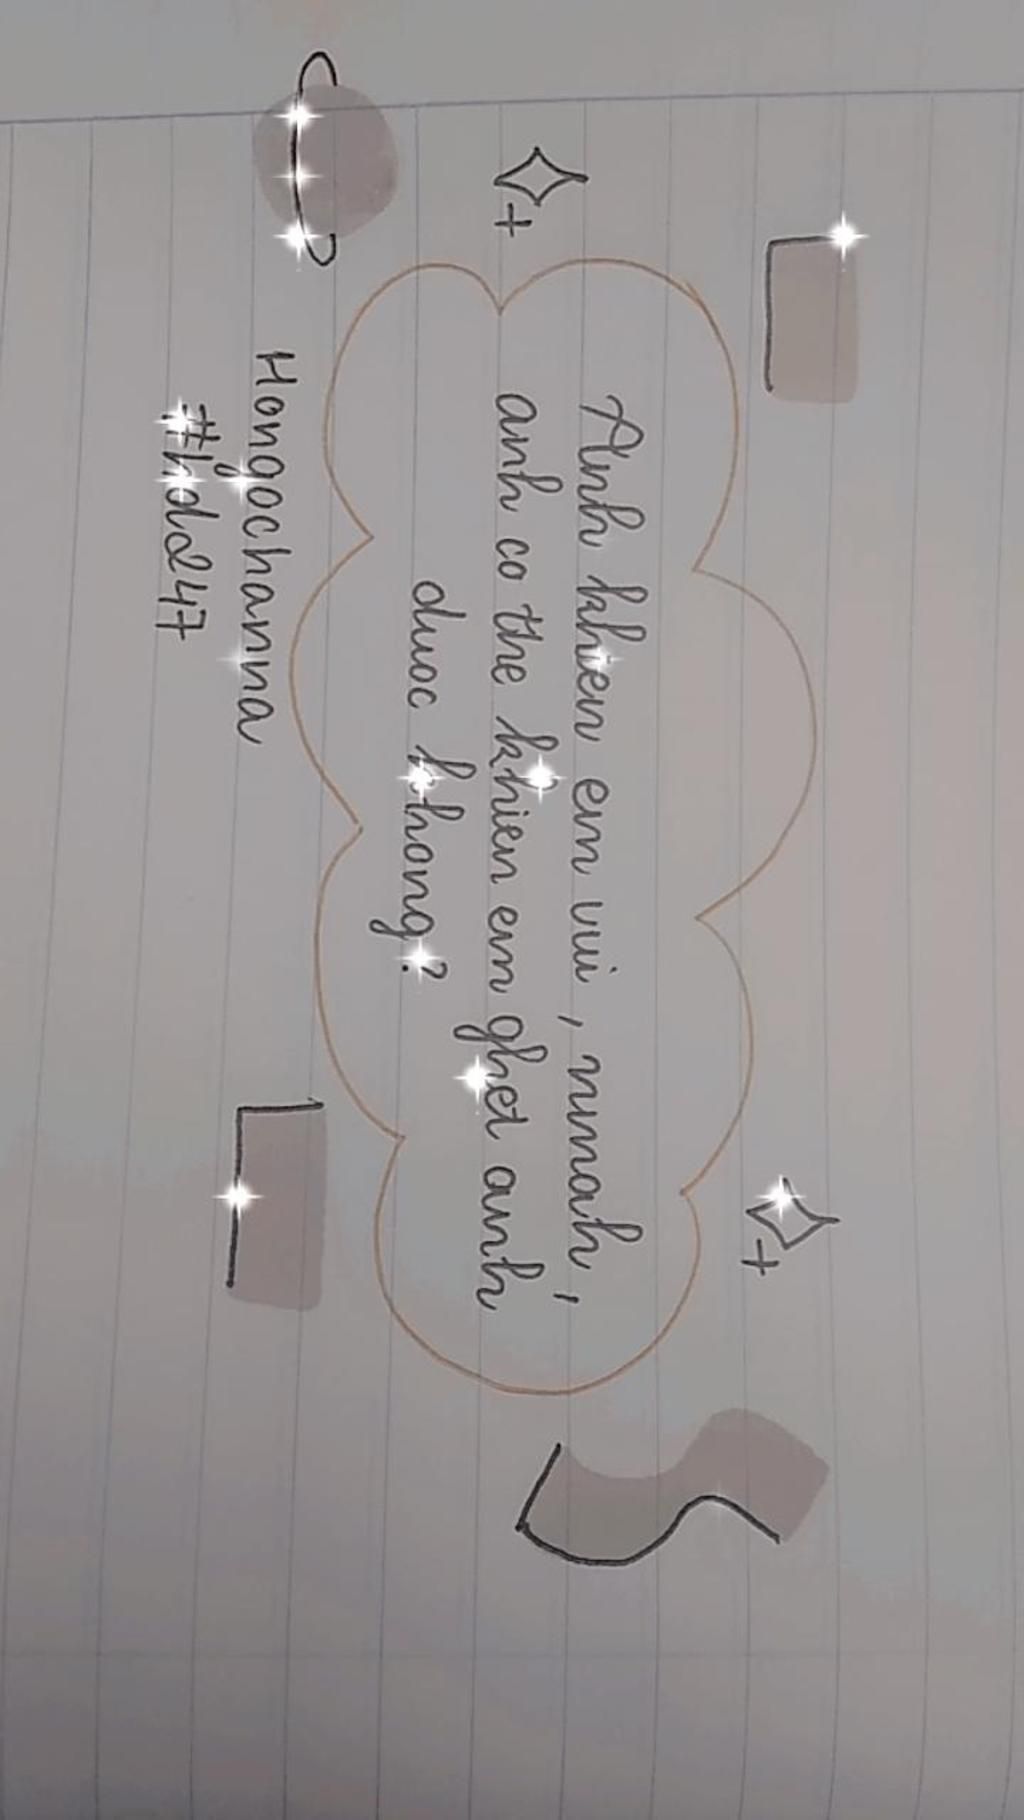 Anh khien em vui, numah,
anh co the khien em ghet anh
duoc khong?
Hongochanna
#hd247